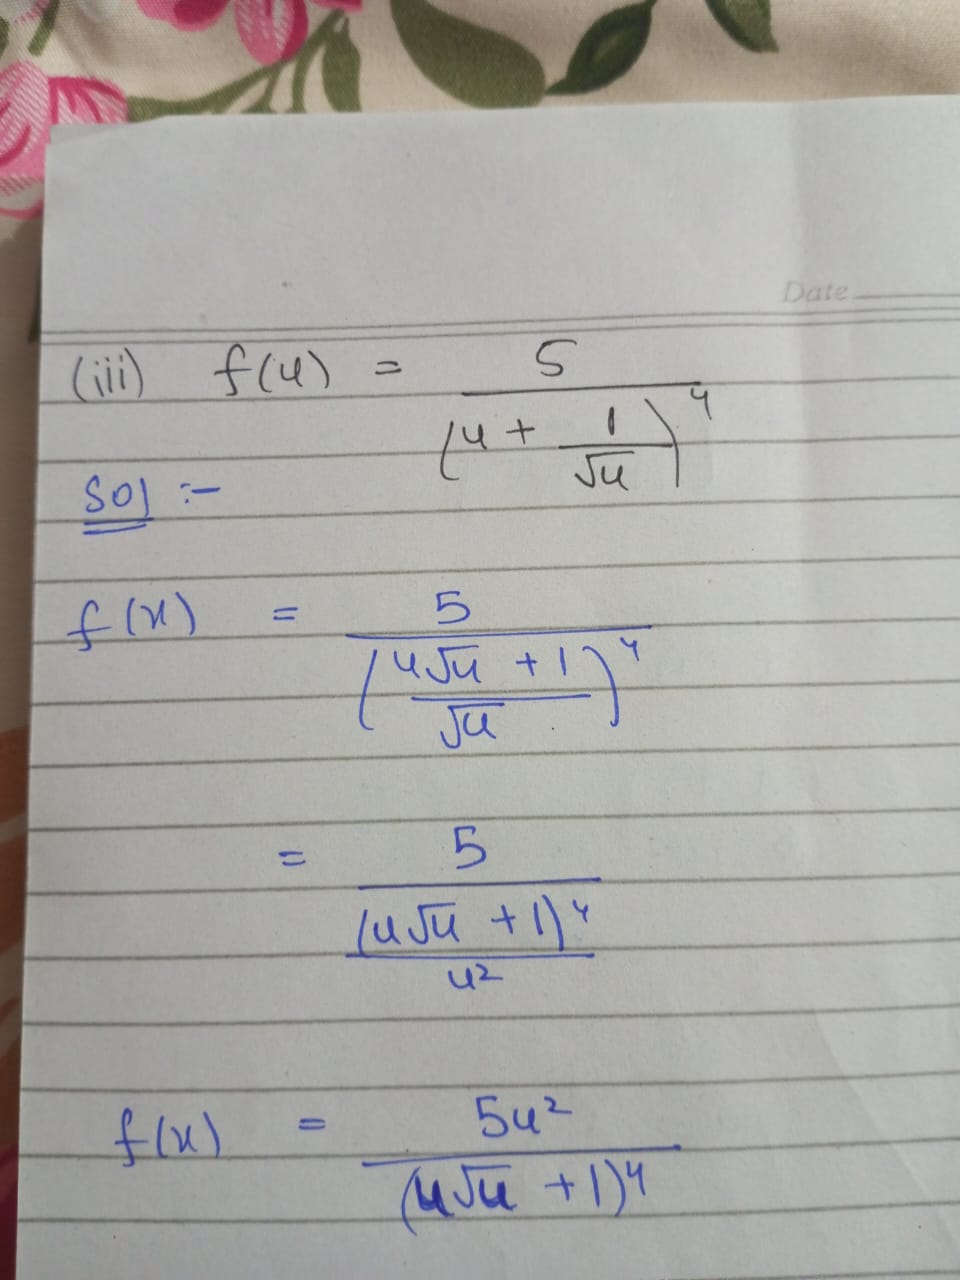 Date
(iii) f(u) = 5 / (u + 1/√u)^4
Sol :-
f(x) = 5 / ((u√u + 1)/√u)^4
= 5 / ((u√u + 1)^4 / u²)
f(x) = 5u² / (u√u + 1)^4